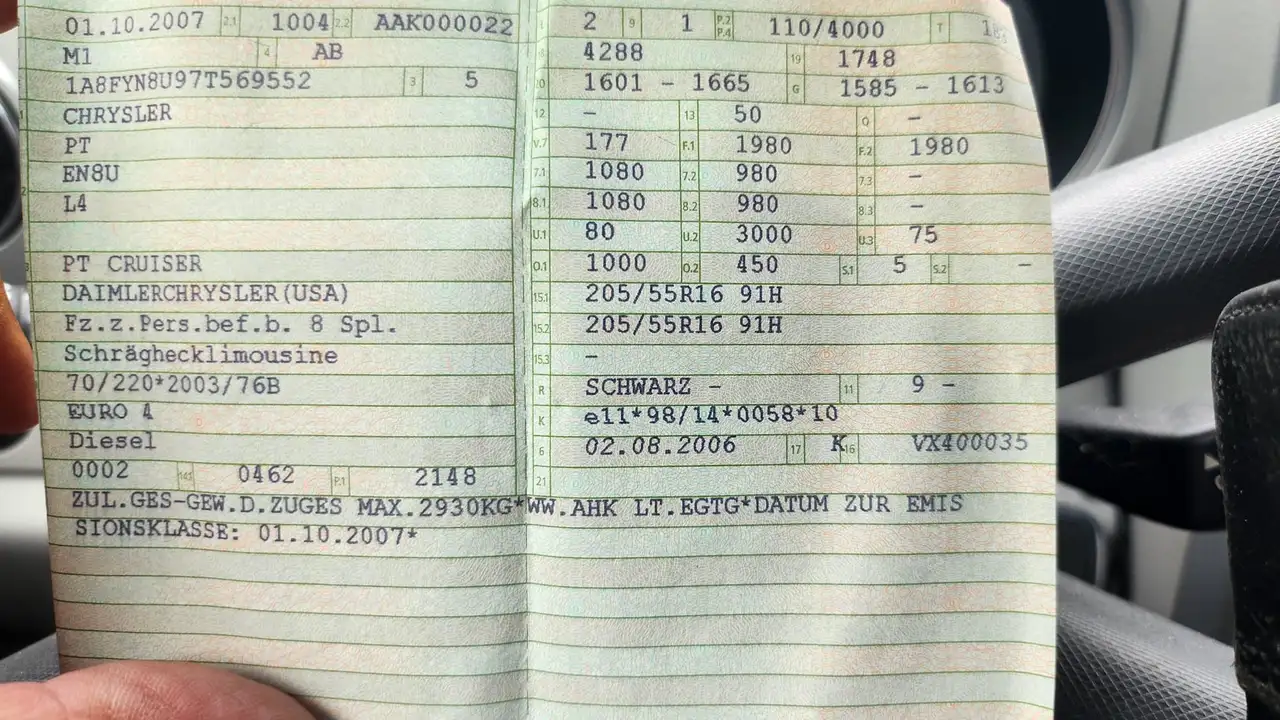 01.10.2007 2.1 1004 2.2 AAK000022
M1 4 AB
1A8FYN8U97T569552 3 5
CHRYSLER
PT
EN8U
L4
PT CRUISER
DAIMLERCHRYSLER(USA)
Fz.z.Pers.bef.b. 8 Spl.
Schräghecklimousine
70/220*2003/76B
EURO 4
Diesel
0002 14.1 0462 P.1 2148
2 9 1 P.2 P.4 110/4000 T
4288 19 1748
20 1601 - 1665 G 1585 - 1613
12 - 13 50 Q -
V.7 177 F.1 1980 F.2 1980
7.1 1080 7.2 980 7.3 -
8.1 1080 8.2 980 8.3 -
U.1 80 U.2 3000 U.3 75
O.1 1000 O.2 450 S.1 5 S.2 -
15.1 205/55R16 91H
15.2 205/55R16 91H
15.3 -
R SCHWARZ - 11 9 -
K e11*98/14*0058*10
6 02.08.2006 17 K 16 VX400035
21
ZUL.GES-GEW.D.ZUGES MAX.2930KG*WW.AHK LT.EGTG*DATUM ZUR EMIS
SIONSKLASSE: 01.10.2007*